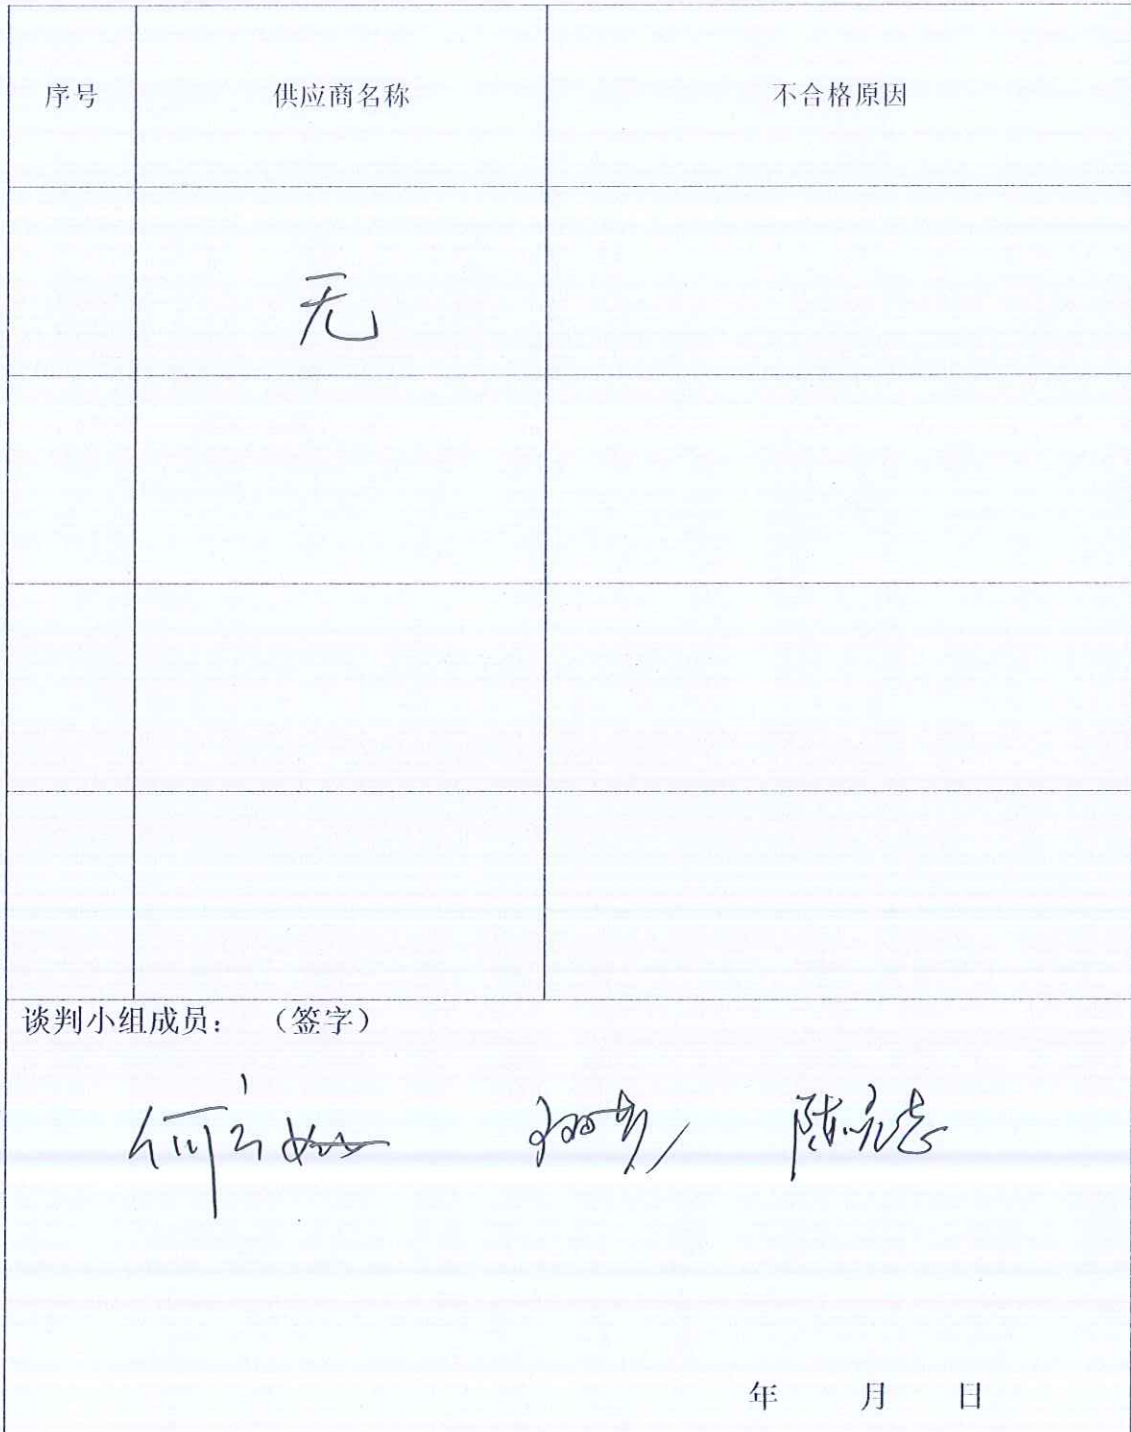 序号 供应商名称 不合格原因
无
谈判小组成员： （签字）
年 月 日